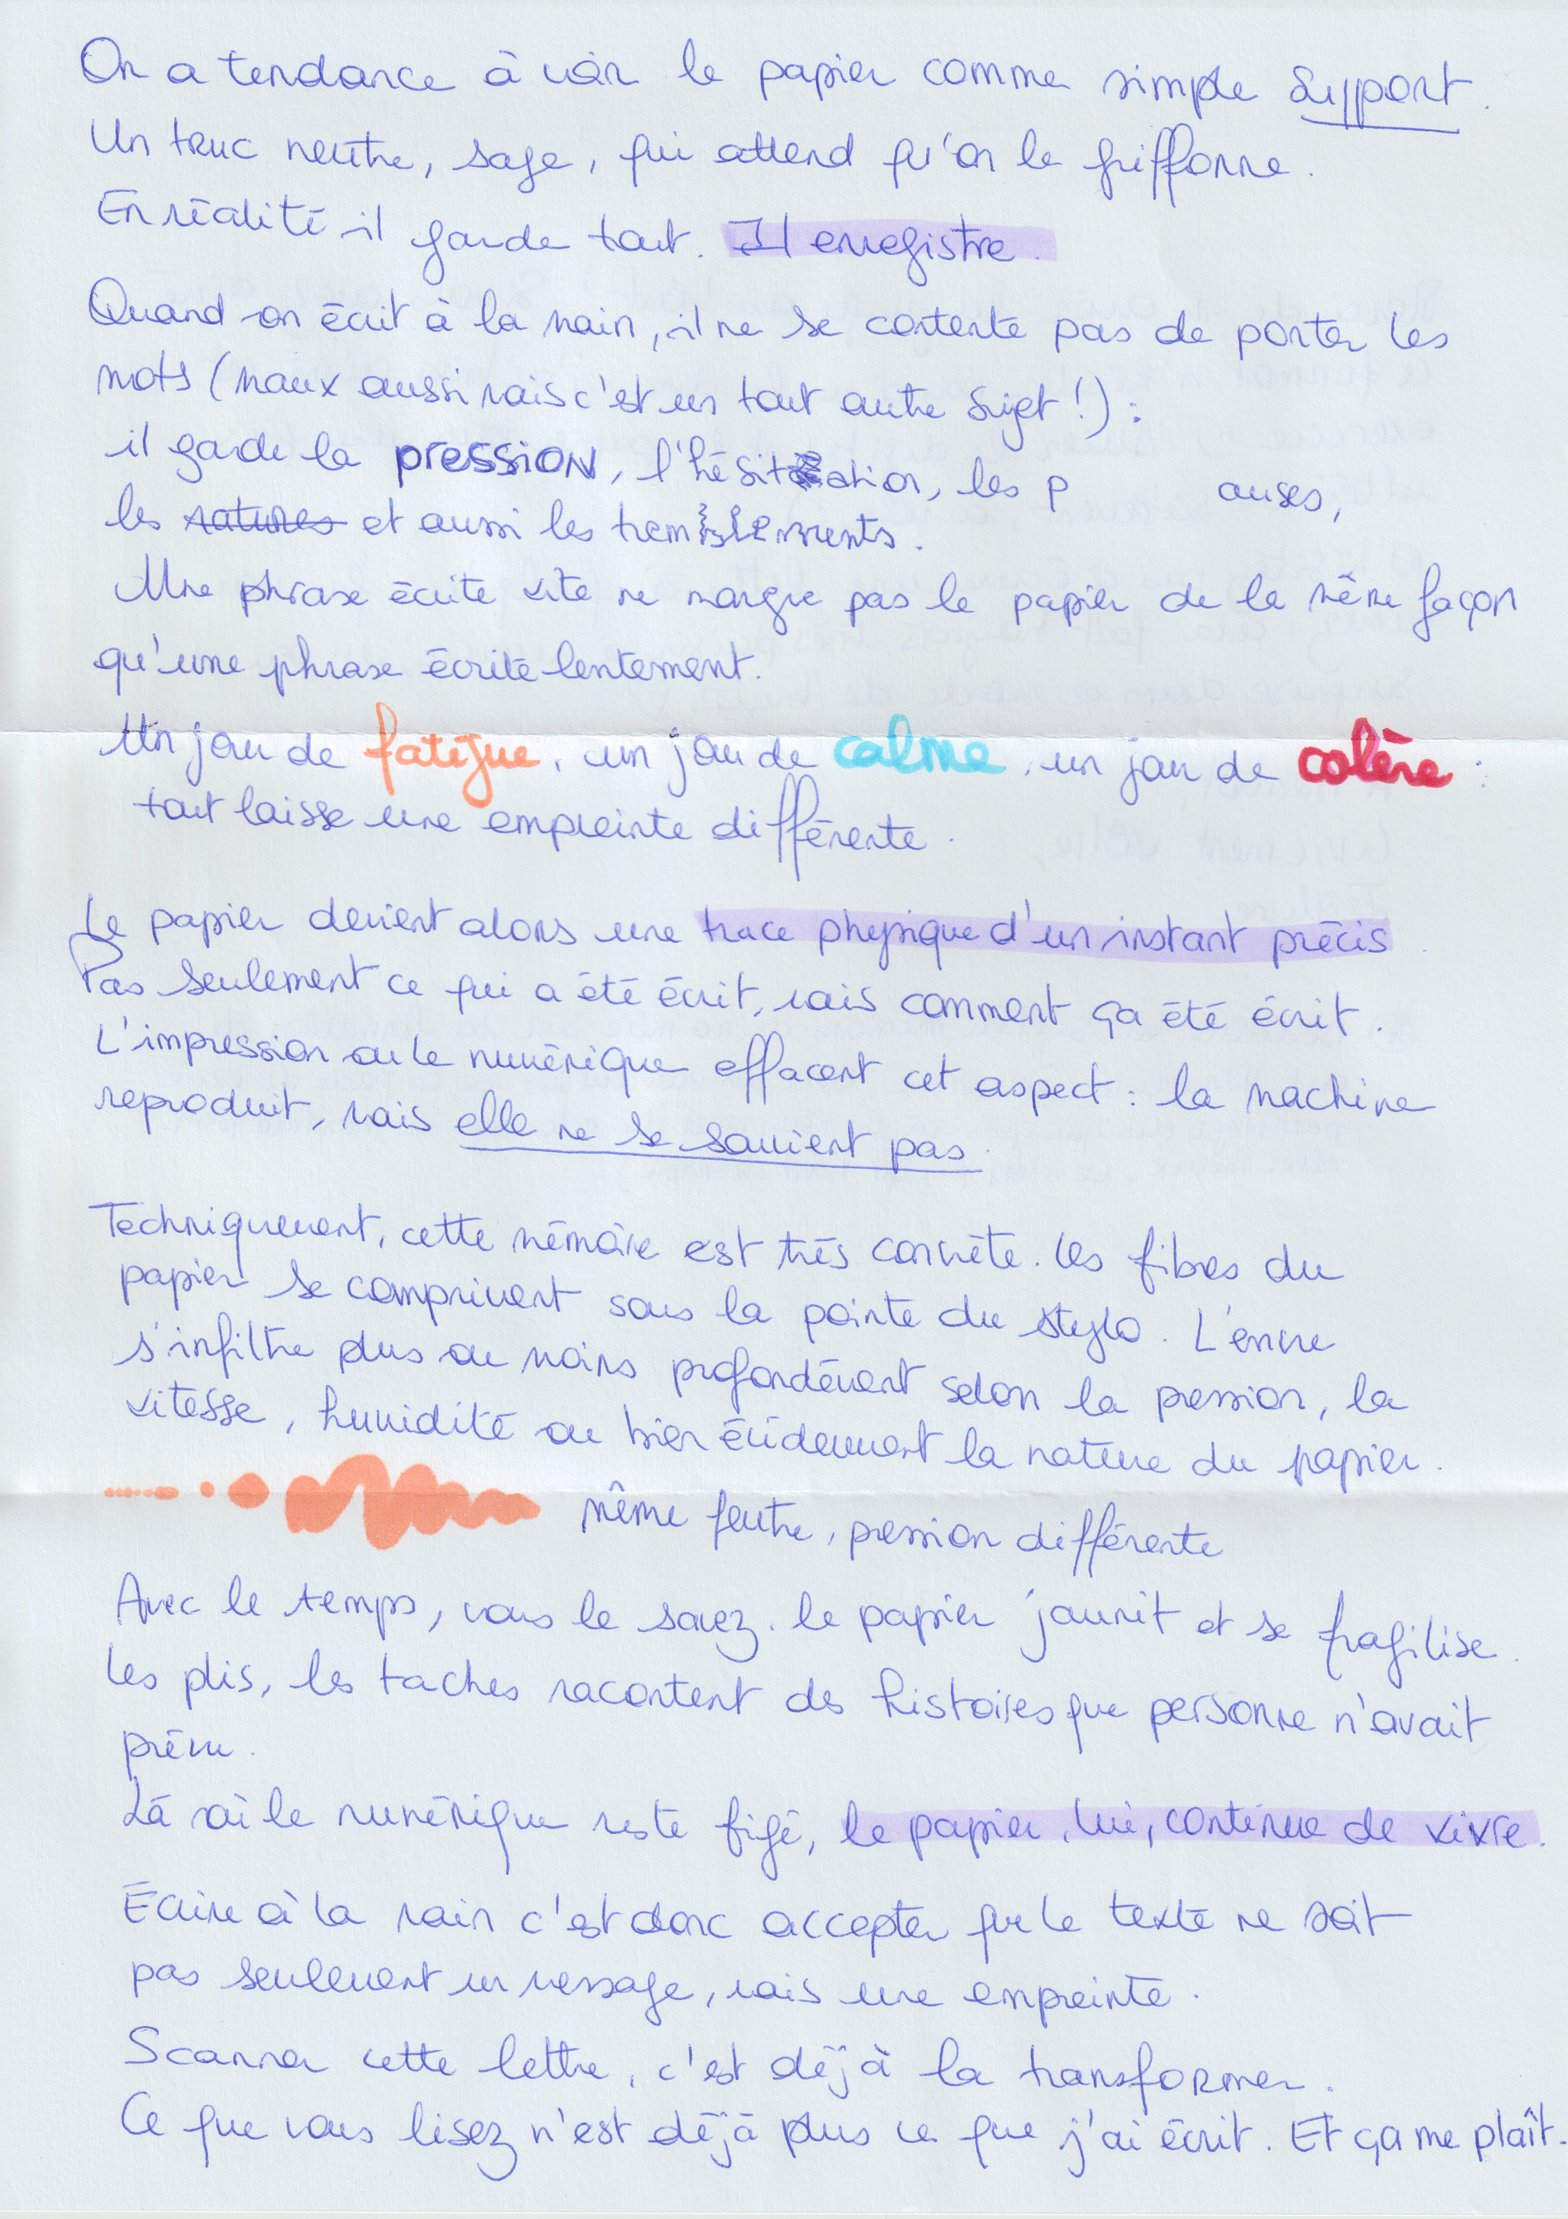 On a tendance à voir le papier comme simple support.
Un truc neutre, sage, qui attend qu'on le griffonne.
En réalité il garde tout. Il enregistre.
Quand on écrit à la main, il ne se contente pas de porter les
mots (maux aussi mais c'est un tout autre sujet !) :
il garde la pression, l'hésitation, les p auses,
les ratures et aussi les tremblements.
Une phrase écrite vite ne marque pas le papier de la même façon
qu'une phrase écrite lentement.
Un jour de fatigue, un jour de calme, un jour de colère :
tout laisse une empreinte différente.
Le papier devient alors une trace physique d'un instant précis.
Pas seulement ce qui a été écrit, mais comment ça été écrit.
L'impression ou le numérique effacent cet aspect : la machine
reproduit, mais elle ne se souvient pas.
Techniquement, cette mémoire est très concrète. Les fibres du
papier se compriment sous la pointe du stylo. L'encre
s'infiltre plus ou moins profondément selon la pression, la
vitesse, humidité ou bien évidemment la nature du papier.
même feutre, pression différente
Avec le temps, vous le savez. le papier jaunit et se fragilise.
Les plis, les taches racontent des histoires que personne n'avait
prévu.
Là où le numérique reste figé, le papier, lui, continue de vivre.
Écrire à la main c'est donc accepter que le texte ne soit
pas seulement un message, mais une empreinte.
Scanner cette lettre, c'est déjà la transformer.
Ce que vous lisez n'est déjà plus ce que j'ai écrit. Et ça me plaît.